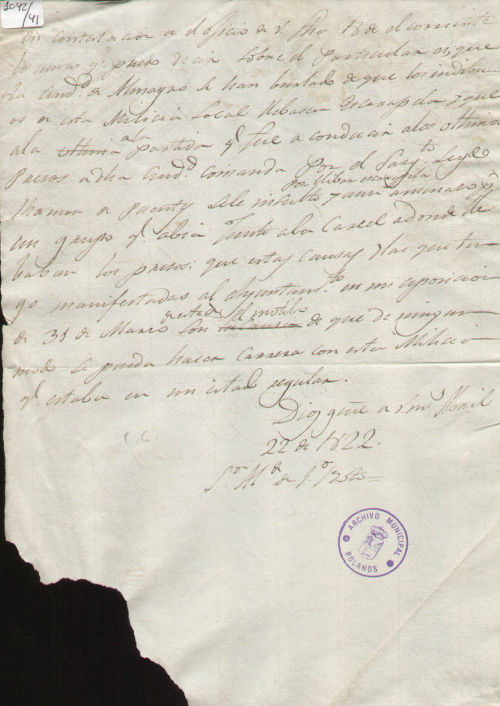 1042/41
En contestacion a el oficio de V. fho 18 de el corriente
lo unico q.e puedo decir sobre el particular es, que
en la Ciud.d de Almagro se han burlado de que los individuos
de esta Milicia Local llebasen Escarapela y que
a la ultima partida q.e fue a conducir a los ultimos
presos a dha Ciud.d comandada por el Sarg.to
por llebar escarapela
un grupo q.e abia junto a la Carcel a donde
los presos: que estas causas y las que
manifestadas al Ayuntam.to en mi esposicion
de 31 de Marzo son el motibo de que de ningun
modo se pueda hacer carrera con esta Milicia
q.e estaba en un estado regular.
Dios gue a V. m.s Abril
22 de 1822.
ARCHIVO MUNICIPAL
BOLAÑOS